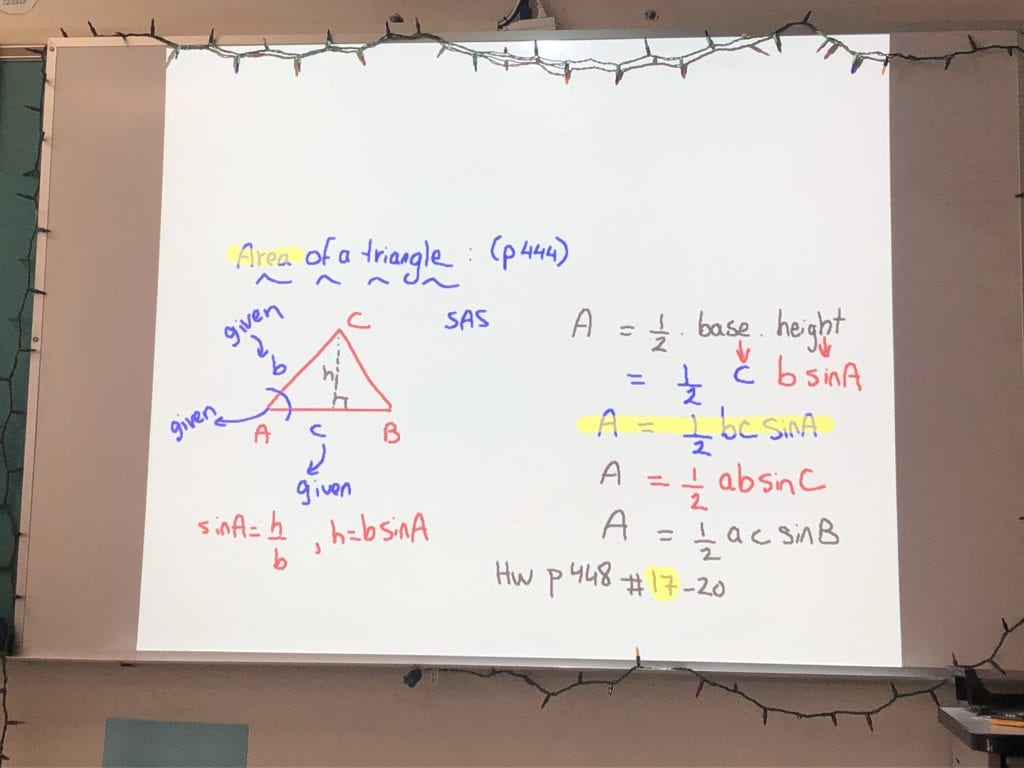 Area of a triangle : (p444)
given
b
C
h
given
A
c
B
given
sinA = h/b , h=bsinA
SAS
A = 1/2 . base . height
= 1/2 c b sinA
A = 1/2 bc sinA
A = 1/2 absinC
A = 1/2 ac sinB
Hw p448 #17-20